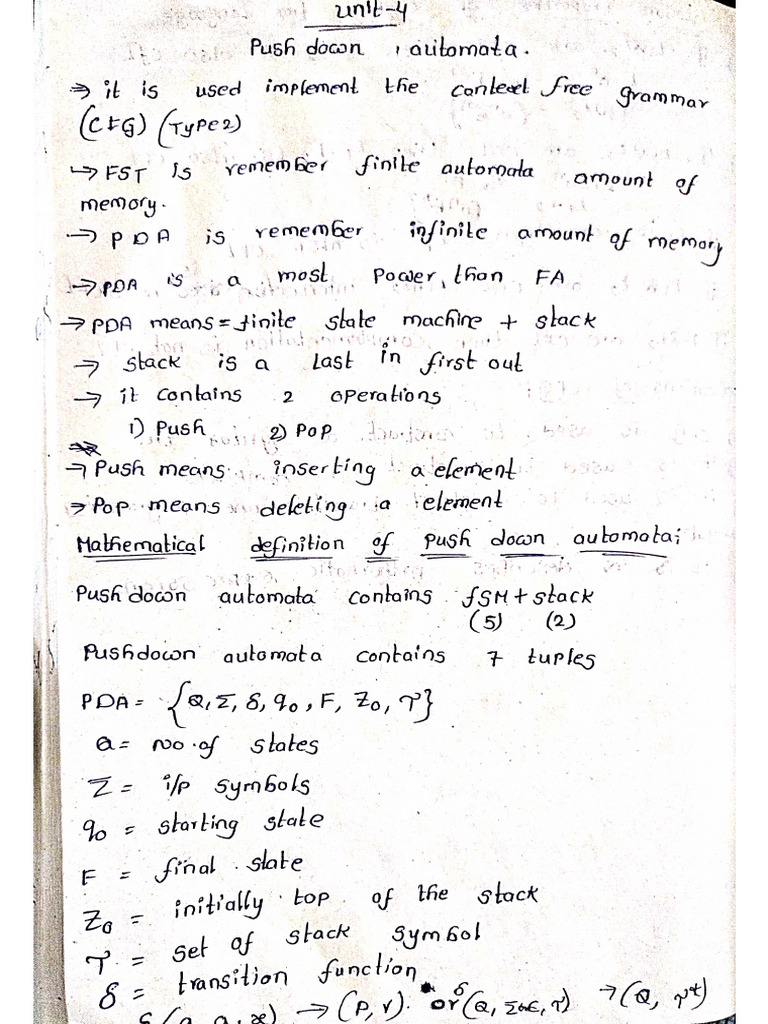 Unit-4
Push down automata.
⇒ it is used implement the context free grammar
(CFG) (Type2)
→ FST is remember finite automata amount of
memory.
→ PDA is remember infinite amount of memory
→ PDA is a most Power, than FA
→ PDA means = finite state machine + stack
→ stack is a Last in first out
→ it contains 2 operations
1) Push 2) Pop
→ Push means inserting a element
→ Pop means deleting a element
Mathematical definition of push down automata;
Push down automata contains FSM + stack
(5) (2)
Pushdown automata contains 7 tuples
PDA = {Q, Σ, δ, q0, F, Z0, Τ}
Q = no. of states
Σ = i/p symbols
q0 = starting state
F = final state
Z0 = initially top of the stack
Τ = set of stack symbol
δ = transition function
δ(q, a, x) → (P, r) or δ(Q, Σ∪ε, Τ) → (Q, Τ*)